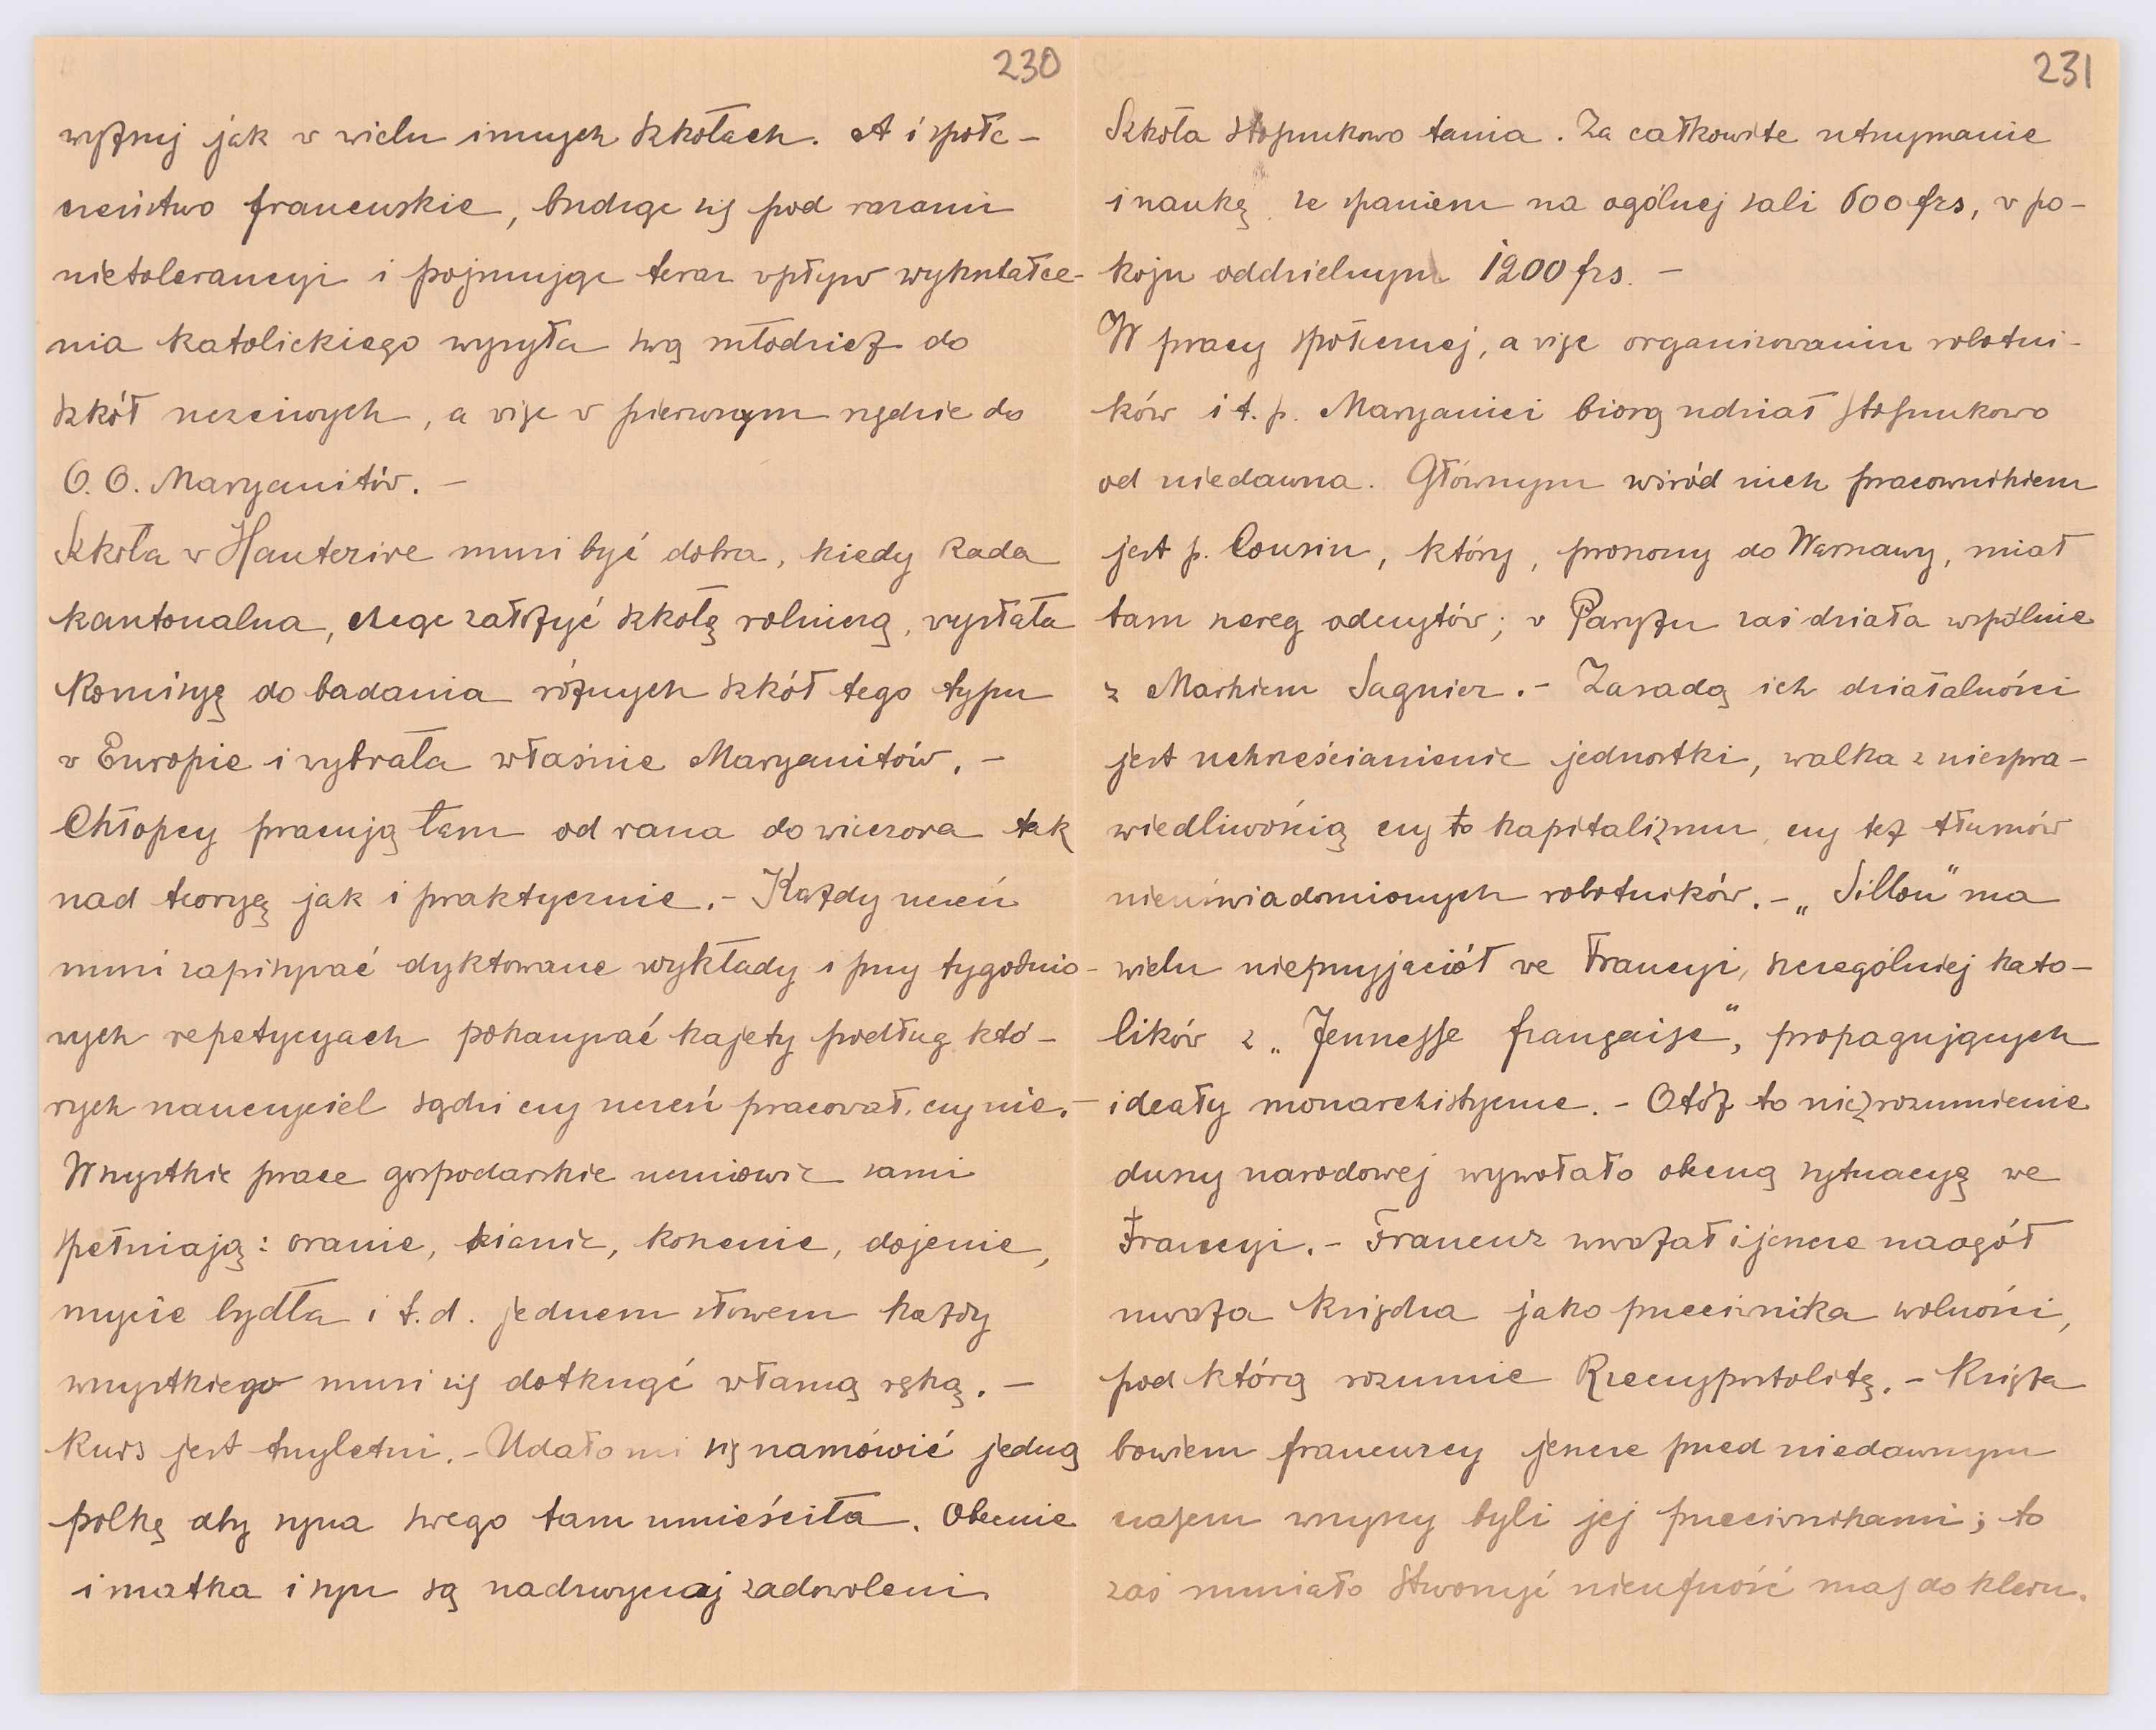 230
wyższej jak w wielu innych szkołach. A i społe-
czeństwo francuskie, budząc się pod razami
nietolerancyi i pojmując teraz wpływ wykształce-
nia katolickiego wysyła swą młodzież do
szkół uczciwych, a więc w pierwszym rzędzie do
O. O. Maryanitów. –
Szkoła w Hauterive musi być dobra, kiedy Rada
kantonalna, chcąc założyć szkołę rolniczą, wysłała
Komisyę do badania różnych szkół tego typu
w Europie i wybrała właśnie Maryanitów. –
Chłopcy pracują tam od rana do wieczora tak
nad teoryą jak i praktycznie. – Każdy uczeń
musi zapisywać dyktowane wykłady i przy tygodnio-
wych repetycyach pokazywać kajety podług któ-
rych nauczyciel sądzi czy uczeń pracował, czy nie. –
Wszystkie prace gospodarskie uczniowie sami
spełniają: oranie, sianie, koszenie, dojenie,
mycie bydła i t. d. jednem słowem każdy
wszystkiego musi się dotknąć własną ręką. –
Kurs jest trzyletni. – Udało mi się namówić jedną
polkę aby syna swego tam umieściła. Obecnie
i matka i syn są nadzwyczaj zadowoleni.
231
Szkoła stosunkowo tania. Za całkowite utrzymanie
i naukę ze spaniem na ogólnej sali 600 frs, w po-
koju oddzielnym 1200 frs. –
W pracy społecznej, a więc organizowaniu robotni-
ków i t. p. Maryanici biorą udział stosunkowo
od niedawna. Głównym wśród nich pracownikiem
jest p. Cousin, który, proszony do Warszawy, miał
tam szereg odczytów; w Paryżu zaś działa wspólnie
z Markiem Sagnier. – Zasadą ich działalności
jest uchrześcianienie jednostki, walka z niespra-
wiedliwością czy to kapitalizmu, czy też tłumów
nieuświadomionych robotników. – „Sillon" ma
wielu nieprzyjaciół we Francyi, szczególniej kato-
lików z „Jeunesse française", propagujących
ideały monarchistyczne. – Otóż to niezrozumienie
duszy narodowej wywołało obecną sytuacyę we
Francyi. – Francuz uważał i jeszcze naogół
uważa księdza jako przeciwnika wolności,
pod którą rozumie Rzeczypospolitę. – Księża
bowiem francuzcy jeszcze przed niedawnym
czasem wszyscy byli jej przeciwnikami; to
zaś musiało stworzyć nieufność mas do kleru.